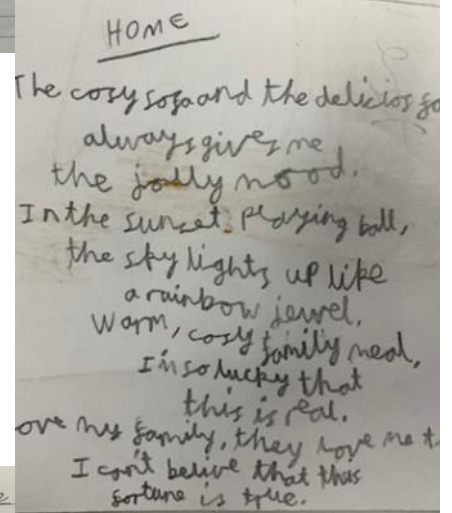 HOME
The cosy sofa and the delicios fo
always gives me
the jolly mood.
In the sunset playing ball,
the sky lights up like
a rainbow jewel.
Warm, cosy family meal,
I'm so lucky that
this is real.
ove my family, they love me t
I can't belive that this
fortune is true.